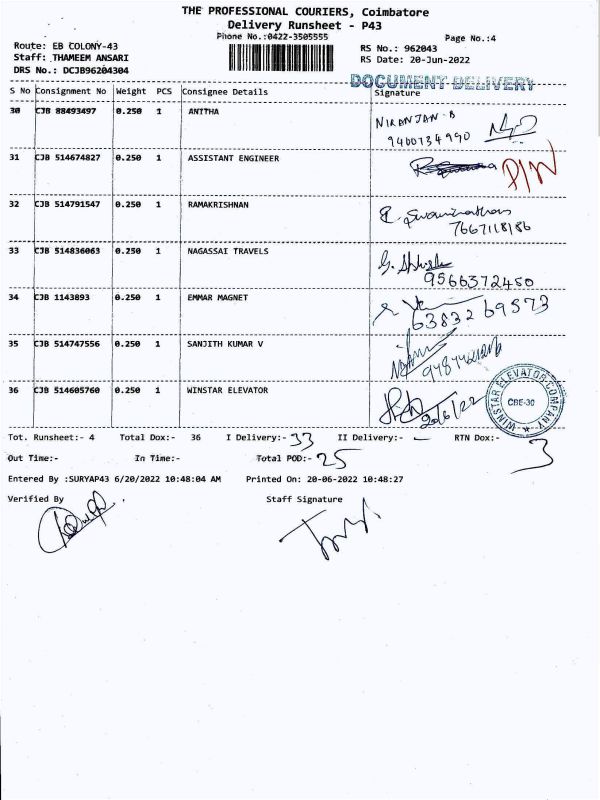 THE PROFESSIONAL COURIERS, Coimbatore
Delivery Runsheet - P43
Phone No.:0422-3505555
Page No.:4
Route: EB COLONY-43
RS No.: 962043
Staff: THAMEEM ANSARI
RS Date: 20-Jun-2022
DRS No.: DCJB96204304
DOCUMENT DELIVERY
S No Consignment No Weight PCS Consignee Details Signature
30 CJB 88493497 0.250 1 ANITHA NIRANJAN B
9400734990
31 CJB 514674827 0.250 1 ASSISTANT ENGINEER
32 CJB 514791547 0.250 1 RAMAKRISHNAN E. Swaminathan
7667118186
33 CJB 514836063 0.250 1 NAGASSAI TRAVELS
9566372450
34 CJB 1143893 0.250 1 EMMAR MAGNET
63832 69573
35 CJB 514747556 0.250 1 SANJITH KUMAR V
36 CJB 514605760 0.250 1 WINSTAR ELEVATOR
20/6/22
WINSTAR ELEVATOR COMPANY
CBE-30
Tot. Runsheet:- 4 Total Dox:- 36 I Delivery:- 33 II Delivery:- – RTN Dox:- 3
Out Time:- In Time:- Total POD:- 25
Entered By :SURYAP43 6/20/2022 10:48:04 AM Printed On: 20-06-2022 10:48:27
Verified By Staff Signature